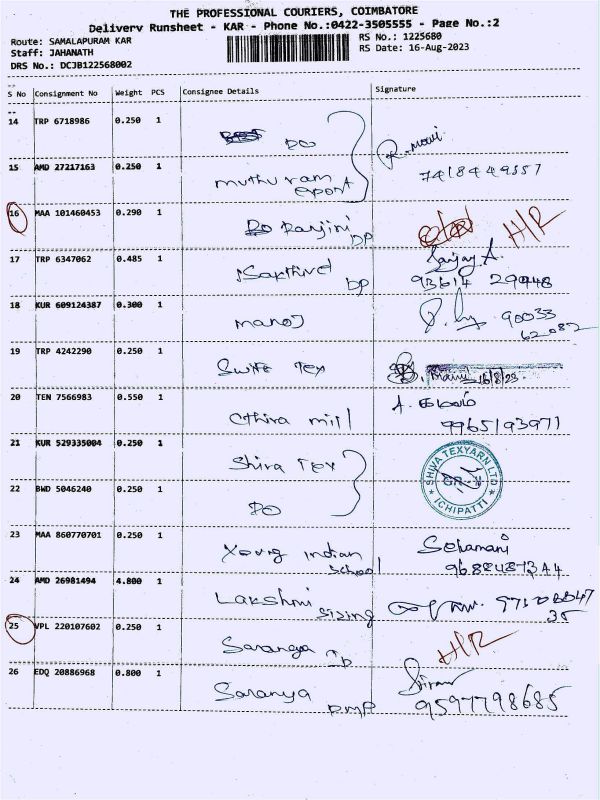 THE PROFESSIONAL COURIERS, COIMBATORE
Delivery Runsheet - KAR - Phone No.:0422-3505555 - Page No.:2
Route: SAMALAPURAM KAR
RS No.: 1225680
Staff: JAHANATH
RS Date: 16-Aug-2023
DRS No.: DCJB122568002
S No Consignment No Weight PCS Consignee Details Signature
14 TRP 6718986 0.250 1 DO
15 AMD 27217163 0.250 1 muthu ram export
16 MAA 101460453 0.290 1 Ranjini DP H/R
17 TRP 6347062 0.485 1 Sakthivel DP Sanjay A.
93614 29448
18 KUR 609124387 0.300 1 manoj 90033
62082
19 TRP 4242290 0.250 1 Swift Tex 16/8/23
20 TEN 7566983 0.550 1 Cthira mill
9965193971
21 KUR 529335004 0.250 1 Shiva Tex
SHIVA TEXYARN LTD
ICHIPATTI
22 BWD 5046240 0.250 1 DO
23 MAA 860770701 0.250 1 Young Indian School
24 AMD 26981494 4.800 1 Lakshmi sizing
25 VPL 220107602 0.250 1 H/R
26 EDQ 20886968 0.800 1 Saranya
9597798685